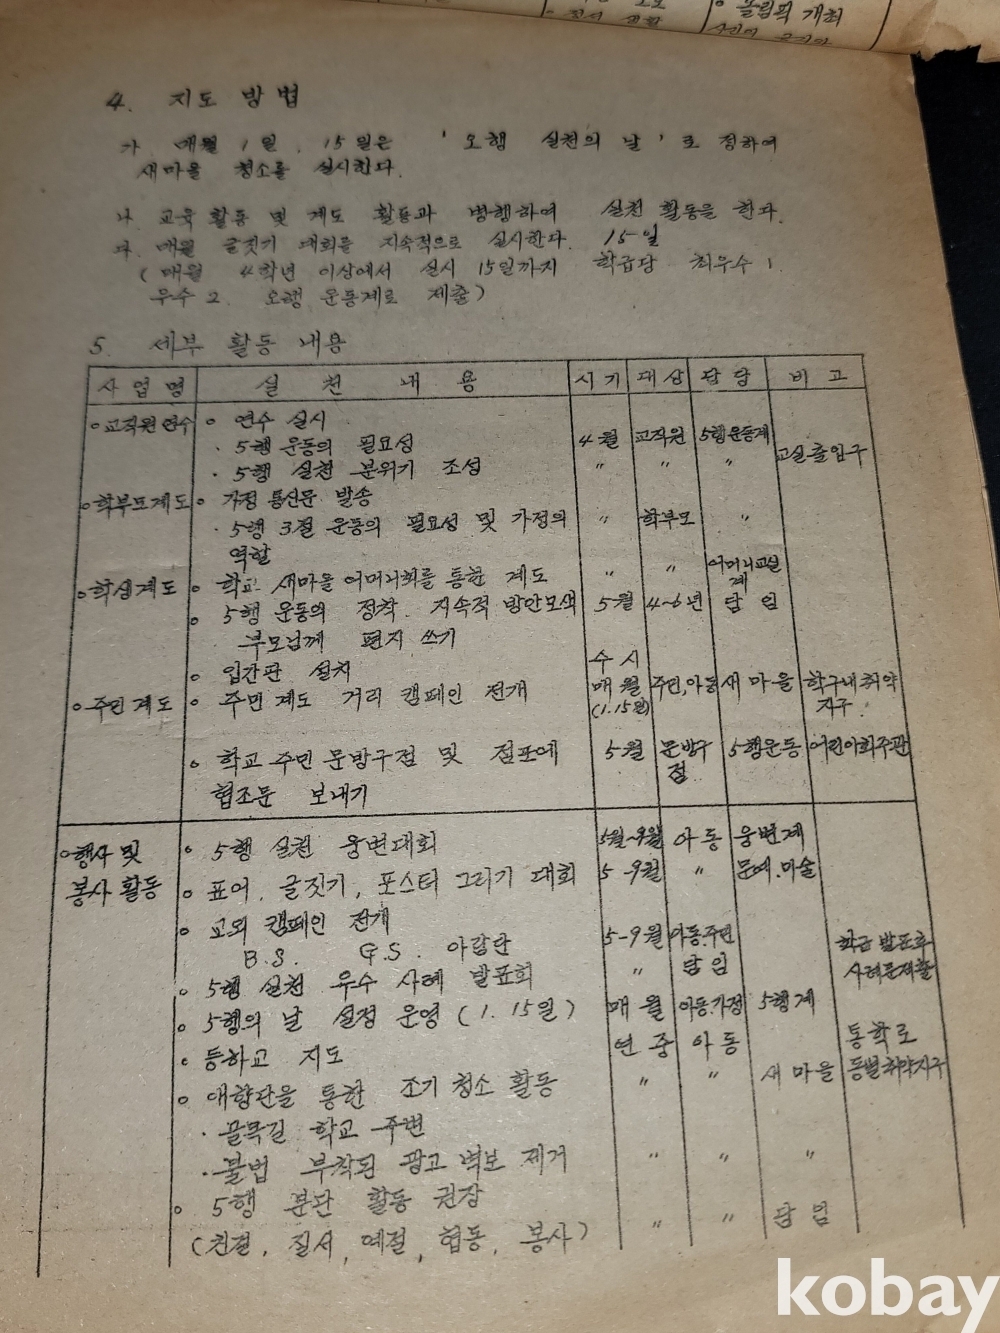 올림픽 개최
4. 지도 방법
가 매월 1일, 15일은 '오행 실천의 날'로 정하여
새마을 청소를 실시한다.
나. 교육 활동 및 계도 활동과 병행하여 실천 활동을 한다.
다. 매월 글짓기 대회를 지속적으로 실시한다. 15일
(매월 4학년 이상에서 실시 15일까지 학급당 최우수 1.
우수 2. 오행 운동계로 제출)
5. 세부 활동 내용
사업명 실천 내용 시기 대상 담당 비고
교직원 연수 연수 실시
· 5행 운동의 필요성 4월 교직원 5행운동계
· 5행 실천 분위기 조성 〃 〃 〃 교실출입구
학부모계도 가정 통신문 발송
· 5행 3절 운동의 필요성 및 가정의 〃 학부모 〃
역할
학교 새마을 어머니회를 통한 계도 〃 〃 어머니교실계
학생계도 5행 운동의 정착. 지속적 방안모색 5월 4~6년 담임
부모님께 편지 쓰기
입간판 설치 수시
주민계도 주민 계도 거리 캠페인 전개 매월 (1.15일) 주민,아동 새마을 학구내취약지구
학교 주변 문방구점 및 점포에 5월 문방구점 5행운동 어린이회주관
협조문 보내기
행사 및 5행 실천 웅변대회 5월~9월 아동 웅변계
봉사 활동 표어, 글짓기, 포스터 그리기 대회 5-9월 〃 문예.미술
교외 캠페인 전개 5-9월 아동.주민
B.S. G.S. 아람단
5행 실천 우수 사례 발표회 〃 담임 학급 발표후
5행의 날 설정 운영 (1. 15일) 매월 아동.가정 5행계
등하교 지도 연중 아동 통학로
애향단을 통한 조기 청소 활동 〃 〃 새마을 동별취약지구
· 골목길 학교 주변
· 불법 부착된 광고 벽보 제거 〃 〃 〃
5행 분단 활동 권장
(친절, 질서, 예절, 협동, 봉사) 〃 〃 담임
kobay